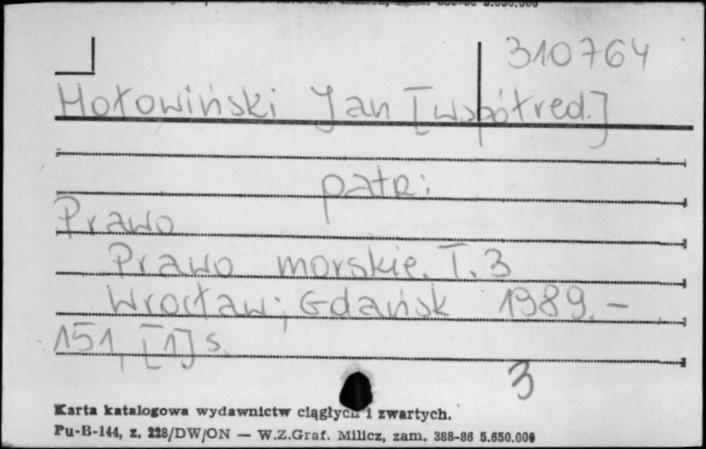 310764
Hołowiński Jan [współred.]
patrz:
Prawo
Prawo morskie. T. 3
Wrocław; Gdańsk 1989. –
151, [1] s.
3
Karta katalogowa wydawnictw ciągłych i zwartych.
Pu-B-144, z. 228/DW/ON — W.Z.Graf. Milicz, zam. 388-86 5.650.000